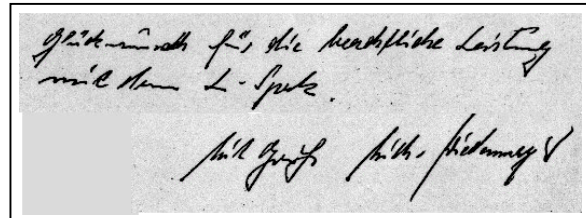 Glückwunsch für die beachtliche Leistung
mit dem L-Spatz.
Mit Gruß